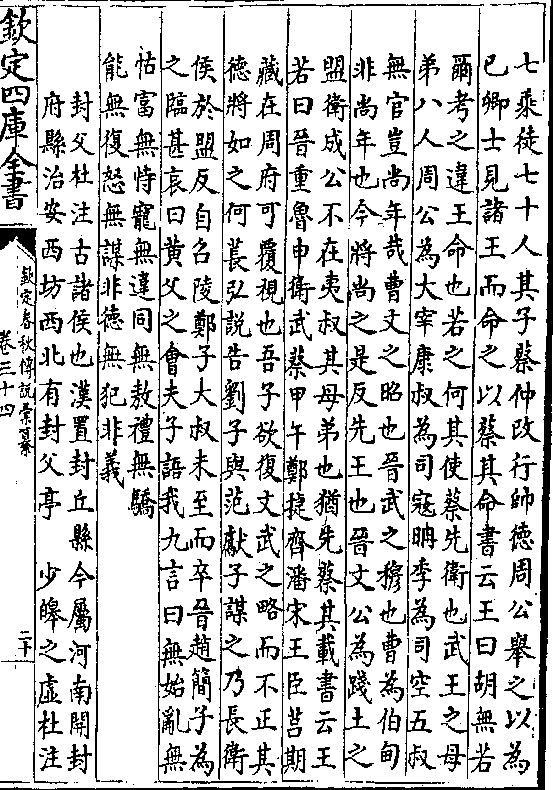 七乗徒七十人其子蔡仲改行帥徳周公舉之以為
已卿士見諸王而命之以蔡其命書云王曰胡無若
爾考之違王命也若之何其使蔡先衛也武王之母
弟八人周公為大宰康叔為司寇𣆀季為司空五叔
無官豈尚年哉曹文之昭也晉武之穆也曹為伯甸
非尚年也今將尚之是反先王也晉文公為踐土之
盟衛成公不在夷叔其母弟也猶先蔡其載書云王
若曰晉重魯申衛武蔡甲午鄭捷齊潘宋王臣莒期
藏在周府可覆視也吾子欲復文武之略而不正其
徳將如之何萇弘説告劉子與范獻子謀之乃長衛
侯於盟反自召陵鄭子大叔未至而卒晉趙簡子為
之臨甚哀曰黄父之㑹夫子語我九言曰無始亂無
怙富無恃寵無違同無敖禮無驕
能無復怒無謀非徳無犯非義
封父杜注古諸侯也漢置封丘縣今屬河南開封
府縣治安西坊西北有封父亭　少皞之虛杜注
欽定四庫全書
欽定春秋傳説彙纂
卷三十四
二十